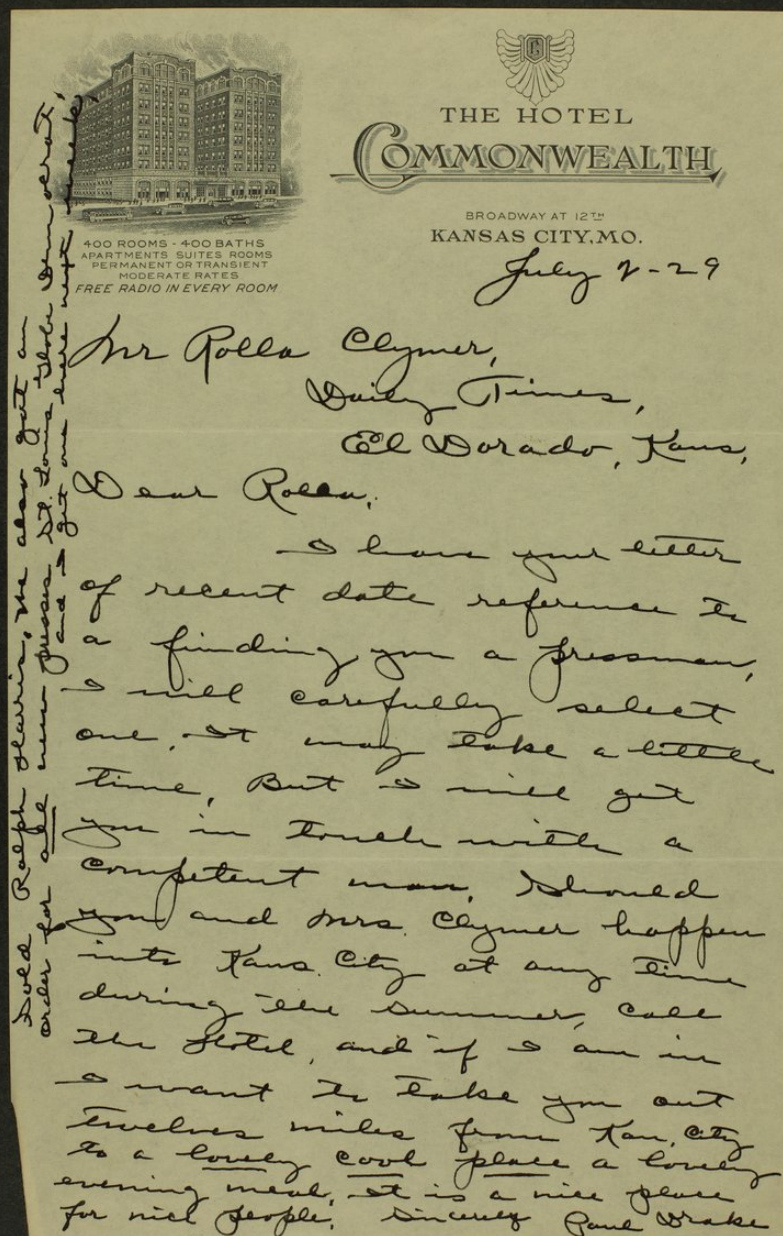 THE HOTEL
COMMONWEALTH
BROADWAY AT 12TH
KANSAS CITY, MO.
400 ROOMS - 400 BATHS
APARTMENTS SUITES ROOMS
PERMANENT OR TRANSIENT
MODERATE RATES
FREE RADIO IN EVERY ROOM
July 2-29
Mr Rolla Clymer,
Daily Times,
El Dorado, Kans,
Dear Rolla,
I have your letter
of recent date reference to
a finding you a pressman,
I will carefully select
one, It may take a little
time, But I will get
you in touch with a
competent man, Should
you and Mrs. Clymer happen
into Kans. City at any time
during the summer, call
the Hotel, and if I am in
I want to take you out
twelves miles from Kan, City
to a lovely cool place a lovely
evening meal, It is a nice place
for nice people. Sincerely Paul Drake
Sold Ralph Harris, we also got an
order for all new presses St. Louis Globe Democrat,
and I get one here next week,